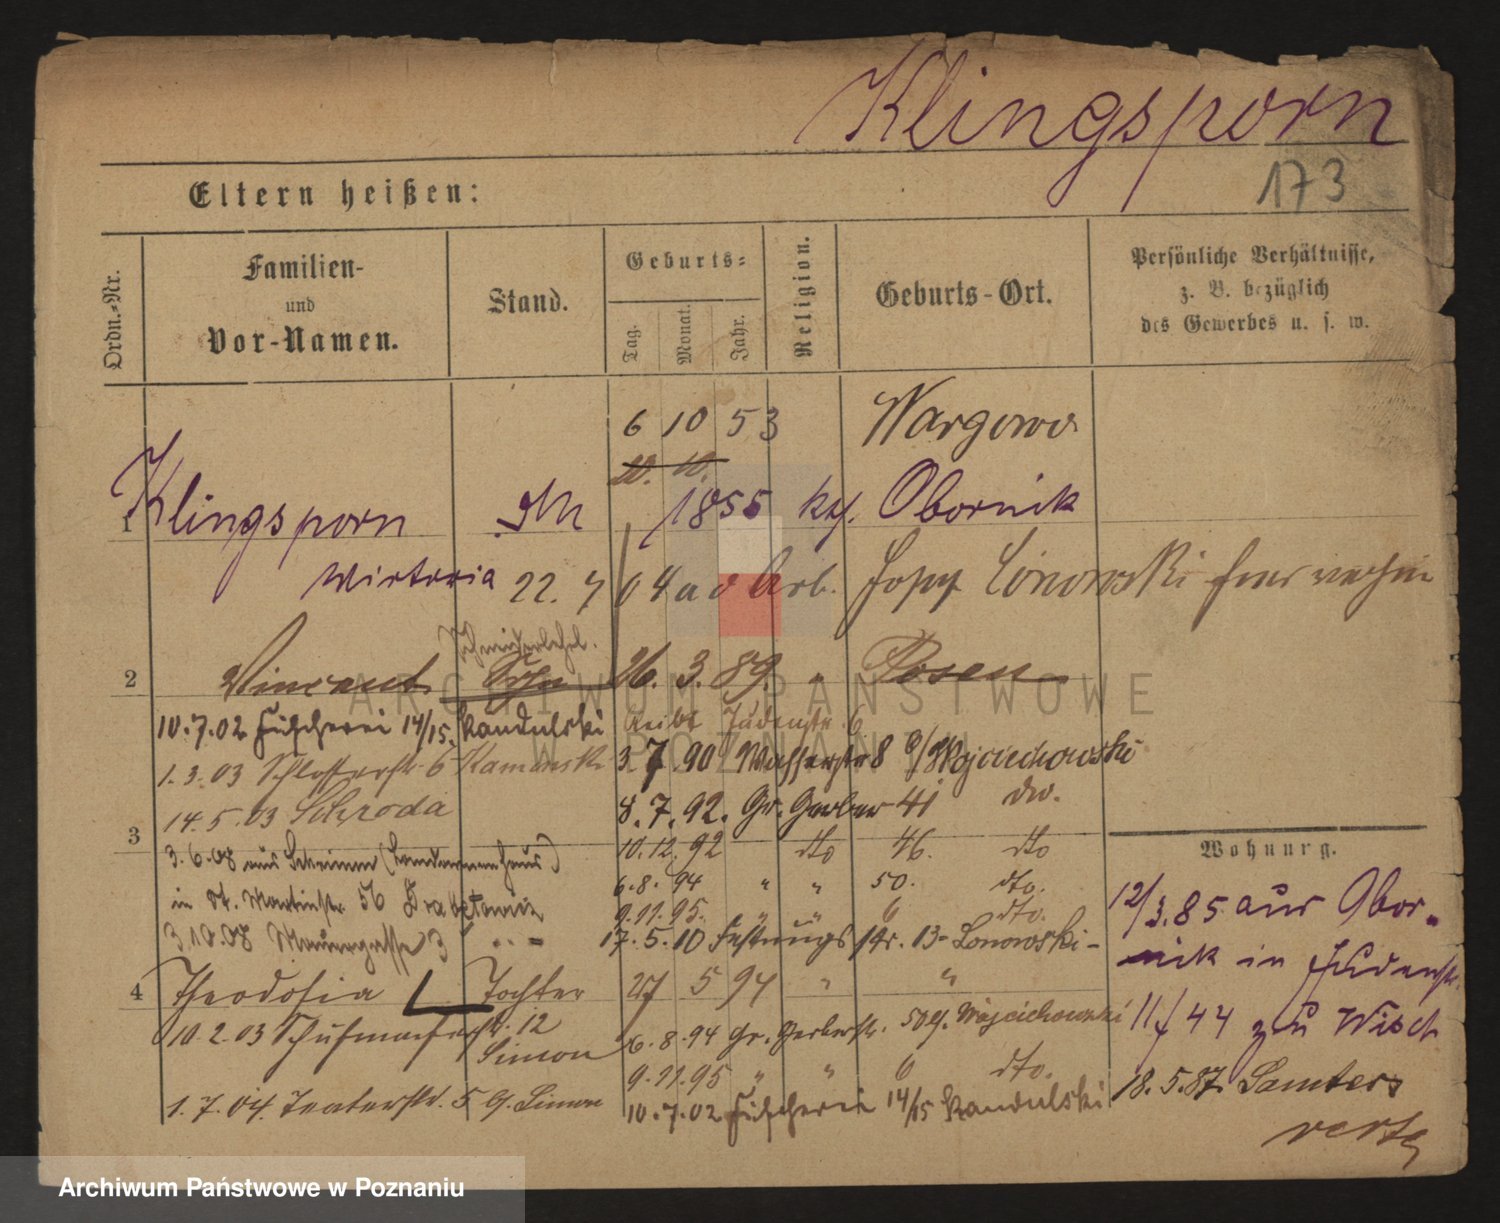 Klingsporn
173
Eltern heißen:
Ordn.-Nr.
Familien-
und
Vor-Namen.
Stand.
Geburts-
Tag.
Monat.
Jahr.
Religion.
Geburts-Ort.
Persönliche Verhältnisse,
z. B. bezüglich
des Gewerbes u. s. w.
6 10 53 Wargowo
20. 10.
1 Klingsporn 1855 Obornik
Wictoria 22. 7 04 a d Arb. Josef Lonowski
2 Vincent Sohn 26. 3. 89. " Posen
10.7.02 Fischerei 14/15. Kandulski Judenstr 6
1.3.03 Schlosserstr. 6 Kaminski 3 7. 90 Wasserstr 8 b/Wojciechowski
14.5.03 Schroda 8.7.92. Gr. Gerber 41 do.
3
3.6.08 aus Schrimm (Landarmenhaus) 10.12.92 dto 46. dto
in St. Martinstr. 56 6.8.94 " " 50. dto.
9.11.95. " " 6 dto.
3.10.08 Mauergasse 3 17.5.10 Festungsstr. 13 Lonowski
4 Theodosia Tochter 27 5 94 " "
10.2.03 Schuhmacherstr. 12
Simon
6.8.94 Gr. Gerberstr. 50 Wojciechowski
9.11.95 " " 6 dto.
1.7.04. Teaterstr. 5 Simon 10.7.02 Fischerei 14/15 Kandulski
Wohnung.
12/3.85 aus Obor-
nik in Judenstr.
11/44 zu
18.5.87. Samter
verte
ARCHIWUM PAŃSTWOWE
W POZNANIU
Archiwum Państwowe w Poznaniu